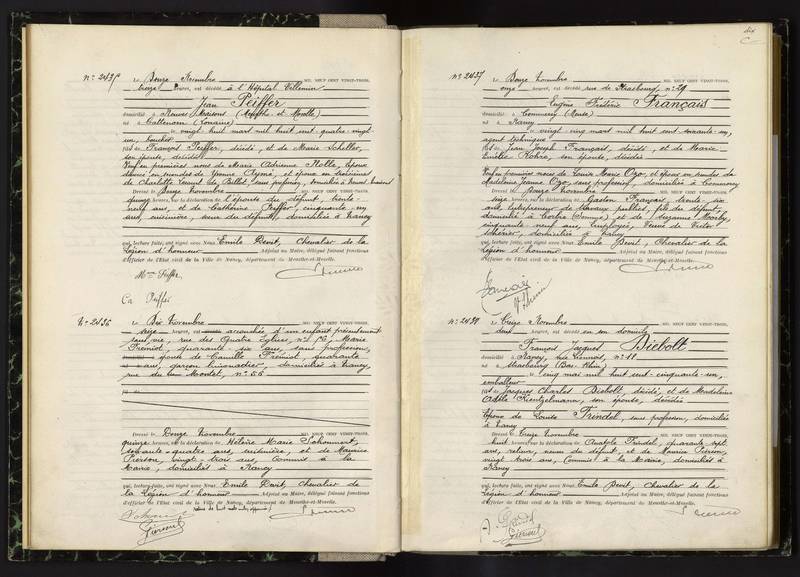 dix
N° 2435
Le Douze Novembre MIL NEUF CENT VINGT-TROIS,
treize heures, est décédé à l'Hôpital Villemin
Jean Peiffer
domicilié à Neuves Maisons (Meurthe et Moselle)
né à Cattenom (Lorraine)
le vingt huit mai mil huit cent quatre vingt
un,
fils de François Peiffer, décédé, et de Marie Scheller,
son épouse, décédée
Veuf en premières noces de Marie Adrienne Nolle, époux
divorcé en secondes de Yvonne Aymé, et époux en troisièmes
de Charlotte, sans profession, domiciliée à
Dressé le Douze Novembre MIL NEUF CENT VINGT-TROIS,
quinze heures, sur la déclaration de l'épouse du défunt, trente
neuf ans, et de Catherine Peiffer, cinquante un
ans, cuisinière, sœur du défunt, domiciliée à Nancy
qui, lecture faite, ont signé avec Nous Emile Devit, Chevalier de la
Légion d'honneur Adjoint au Maire, délégué faisant fonctions
d'officier de l'Etat civil de la Ville de Nancy, département de Meurthe-et-Moselle.
Mme Peiffer
Ca Peiffer
N° 2436
Le Dix Novembre MIL NEUF CENT VINGT-TROIS,
seize heures, est accouchée d'un enfant présentement
sans vie, rue des Quatre Eglises, n°, Marie
Fremiot, quarante six ans, sans profession,
épouse de Camille Fremiot, quarante
ans, garçon limonadier, domiciliés à Nancy
rue du Montet, n° 56
Dressé le Douze Novembre MIL NEUF CENT VINGT-TROIS,
quinze heures, sur la déclaration de Hélène Marie Schonnert,
soixante quatre ans, infirmière, et de Maurice
Pierson, vingt trois ans, Commis à la
Mairie, domiciliés à Nancy
qui, lecture faite, ont signé avec Nous Emile Devit, Chevalier de
la Légion d'honneur Adjoint au Maire, délégué faisant fonctions
d'officier de l'Etat civil de la Ville de Nancy, département de Meurthe-et-Moselle.
N° 2437
Le Douze Novembre MIL NEUF CENT VINGT-TROIS,
onze heures, est décédé rue de Strasbourg, n° 29
Eugène Frédéric Français
domicilié à Commercy (Meuse)
né à Nancy
le vingt cinq mars mil huit cent soixante un,
agent technique
fils de Jean Joseph Français, décédé, et de Marie
Emélie Rohre, son épouse, décédée
Veuf en premières noces de Louise Marie Ozo, et époux en secondes de
Madeleine Jeanne Ozo, sans profession, domiciliée à Commercy
Dressé le Douze Novembre MIL NEUF CENT VINGT-TROIS,
seize heures, sur la déclaration de Gaston Français, trente six
ans, entrepreneur de travaux publics, fils du défunt,
domicilié à Corbie (Somme), et de Suzanne,
cinquante neuf ans, employée, Veuve de Victor
domiciliée à Nancy
qui, lecture faite, ont signé avec Nous Emile Devit, Chevalier de la
Légion d'honneur Adjoint au Maire, délégué faisant fonctions
d'officier de l'Etat civil de la Ville de Nancy, département de Meurthe-et-Moselle.
N° 2438
Le Treize Novembre MIL NEUF CENT VINGT-TROIS,
deux heures, est décédé en son domicile
François Jacques Diebolt
domicilié à Nancy, rue, n° 11
né à Strasbourg (Bas-Rhin)
le cinq mai mil huit cent cinquante un,
emballeur
fils de Jacques Charles Diebolt, décédé, et de Madeleine
Adèle Kientzelmann, son épouse, décédée
Époux de Louise Trindel, sans profession, domiciliée
à Nancy
Dressé le Treize Novembre MIL NEUF CENT VINGT-TROIS,
huit heures, sur la déclaration de Anatole Trindel, quarante sept
ans, neveu du défunt, et de Maurice Pierson,
vingt trois ans, Commis à la Mairie, domiciliés à
Nancy
qui, lecture faite, ont signé avec Nous Emile Devit, Chevalier de la
Légion d'honneur Adjoint au Maire, délégué faisant fonctions
d'officier de l'Etat civil de la Ville de Nancy, département de Meurthe-et-Moselle.